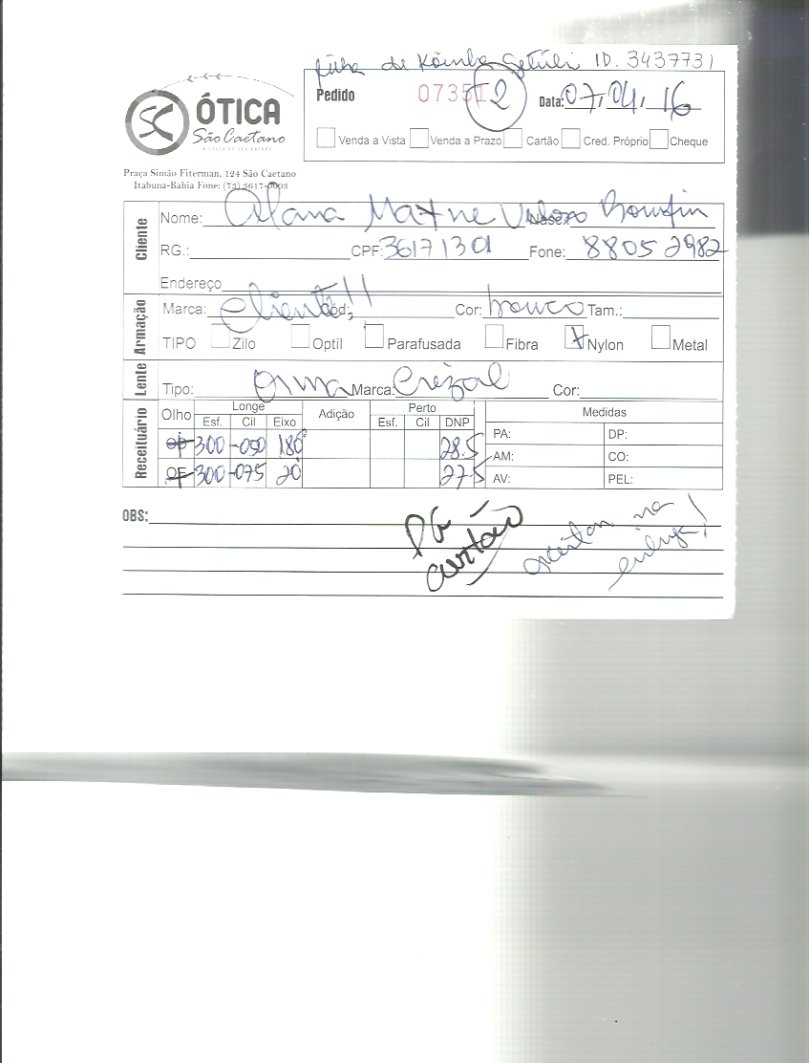 filha de ID. 3437731
ÓTICA
São Caetano
Praça Simão Fiterman, 124 São Caetano
Itabuna-Bahia Fone: (73) 3617-0003
Pedido 0735 2 Data: 07, 04, 16
Venda a Vista Venda a Prazo Cartão Cred. Próprio Cheque
Cliente
Nome: Alana
RG.: CPF: 36171301 Fone: 88052982
Endereço
Armação
Marca: Cliente!! Cód: Cor: Tam.:
TIPO Zilo Optil Parafusada Fibra x Nylon Metal
Lente
Tipo: Orma Marca: Crizal Cor:
Receituário
Olho Longe Adição Perto Medidas
Esf. Cil Eixo Esf. Cil DNP
OD -300 -050 180° 28.5 PA: DP:
AM: CO:
OE -300 -075 20° 27.5 AV: PEL:
OBS:
PG
cartão
na